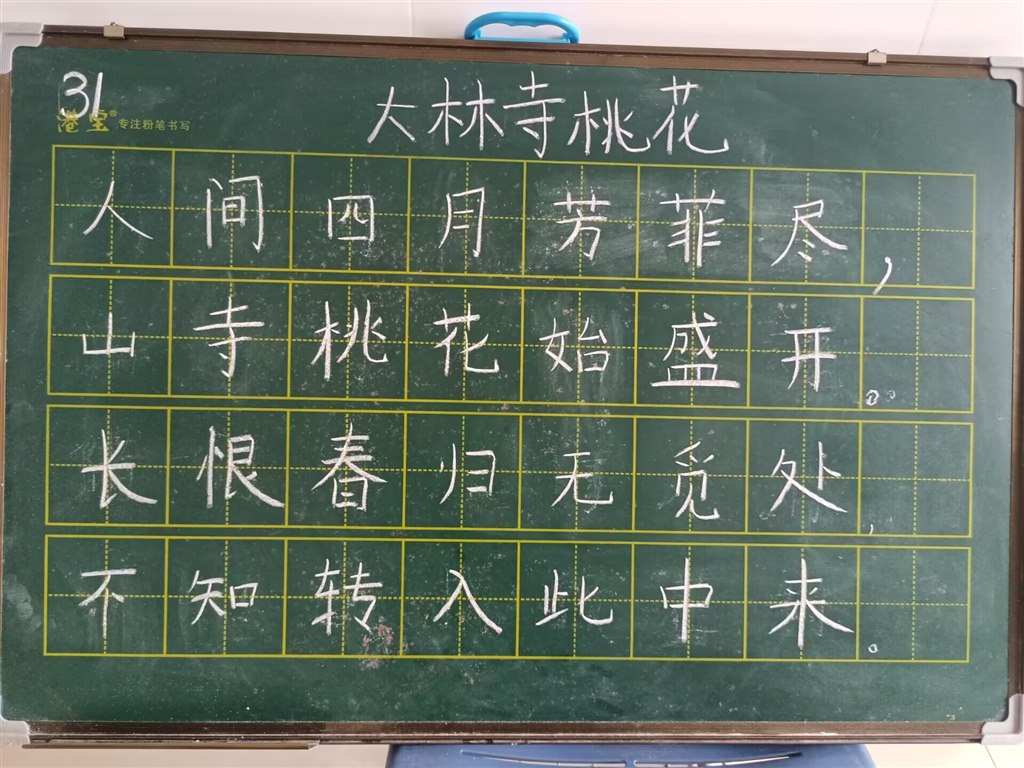 31
港宝® 专注粉笔书写
大林寺桃花
人间四月芳菲尽，
山寺桃花始盛开。
长恨春归无觅处，
不知转入此中来。